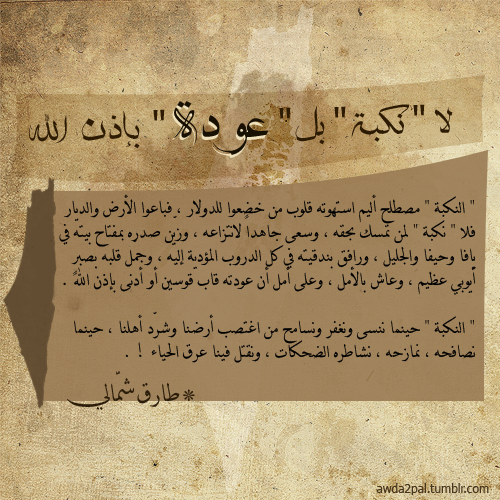 لا " نكبة " بل " عودة " بإذن الله
" النكبة " مصطلح أليم استهوته قلوب من خضعوا للدولار ، فباعوا الأرض والديار
فلا " نكبة " لمن تمسك بحقه ، وسعى جاهداً لانتزاعه ، وزيّن صدره بمفتاح بيته في
يافا وحيفا والجليل ، ورافق بندقيته في كل الدروب المؤدية إليه ، وجمل قلبه بصبرٍ
أيوبي عظيم ، وعاش بالأمل ، وعلى أمل أن عودته قاب قوسين أو أدنى بإذن الله .
" النكبة " حينما ننسى ونغفر ونسامح من اغتصب أرضنا وشرّد أهلنا ، حينما
نصافحه ، نمازحه ، نشاطره الضحكات ، ونقتل فينا عرق الحياء ! .
* طارق شمّالي
awda2pal.tumblr.com